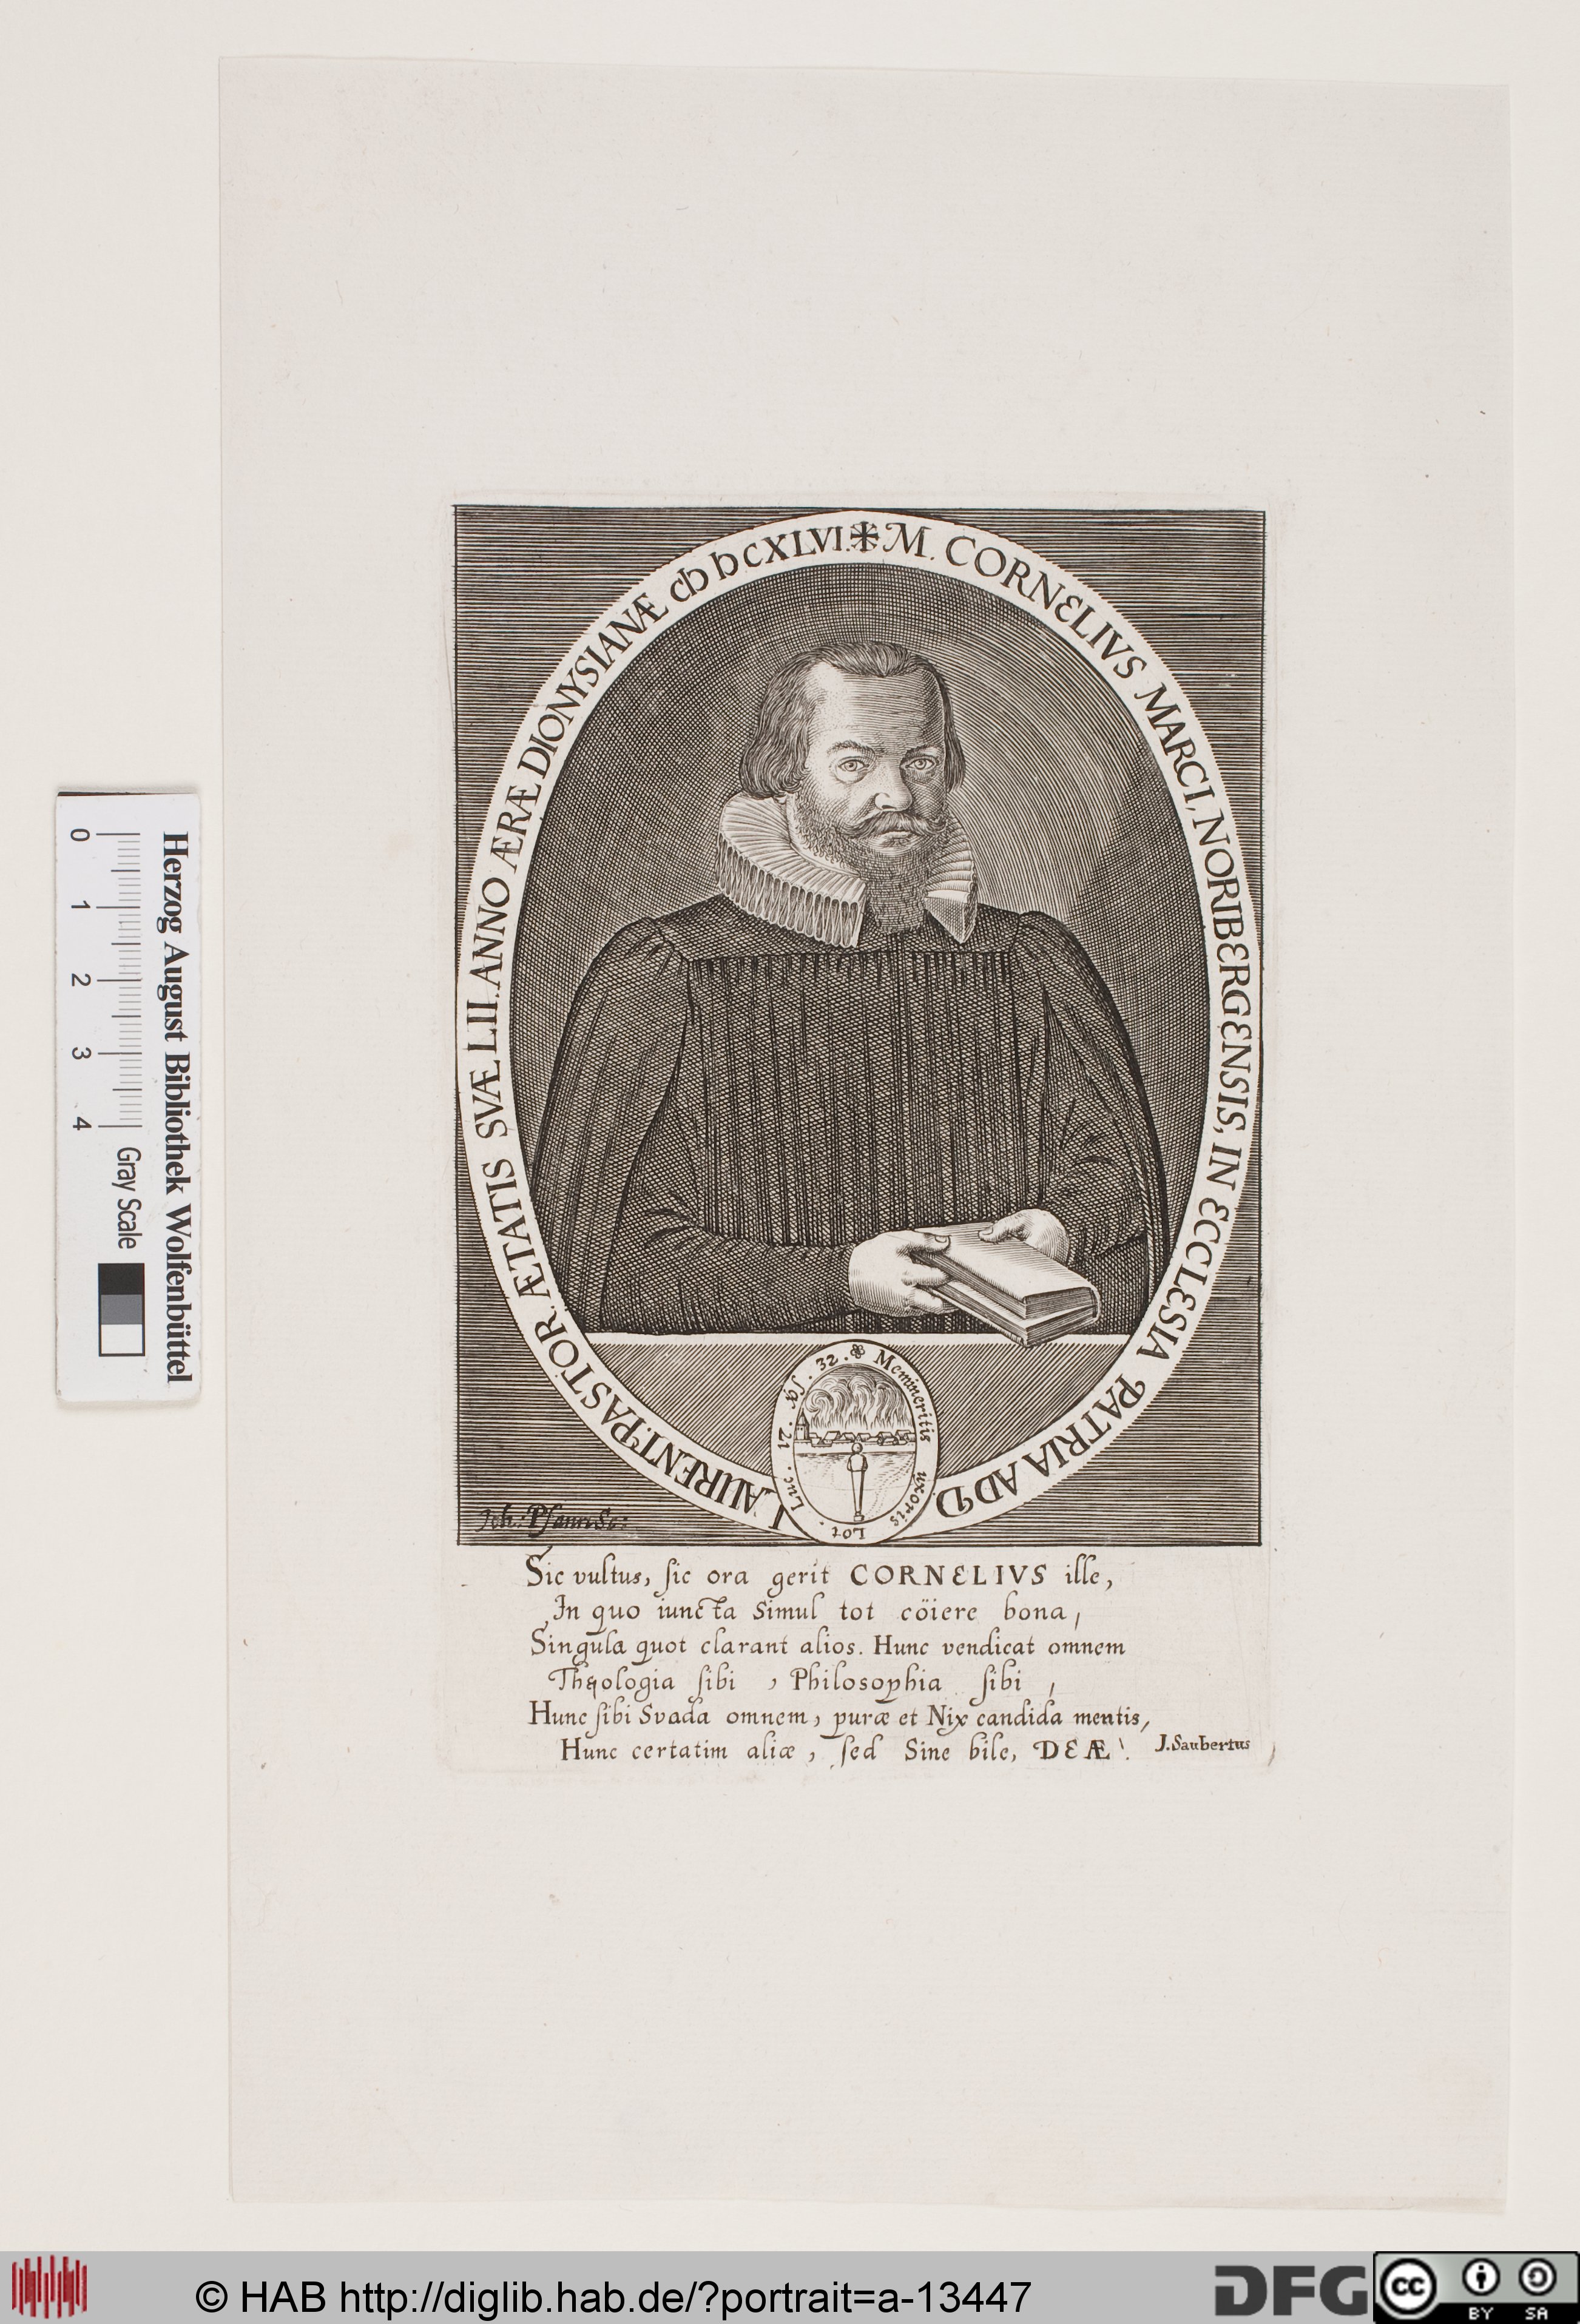 M. CORNELIVS MARCI, NORIBERGENSIS, IN ECCLESIA PATRIA AD D. LAURENT. PASTOR. ÆTATIS SVÆ LII. ANNO ÆRÆ DIONYSIANÆ cIↃ IↃCXLVI.
Memineritis uxoris Lot. Luc. 21. ſq. ſ. 32.
Joh. Pfann Sc:
Sic vultus, ſic ora gerit CORNELIVS ille,
In quo iuncta Simul tot cöiere bona,
Singula quot clarant alios. Hunc vendicat omnem
Theologia ſibi, Philosophia ſibi,
Hunc ſibi Svada omnem, puræ et Nix candida mentis,
Hunc certatim aliæ, ſed Sine bile, DEÆ!
J. Saubertus
Herzog August Bibliothek Wolfenbüttel
0 1 2 3 4 Gray Scale
© HAB http://diglib.hab.de/?portrait=a-13447
DFG
cc BY SA